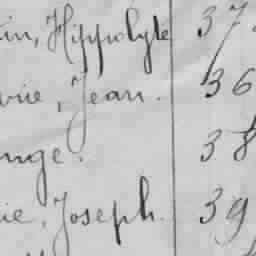 in, Hippolyte 37.
vrie, Jean. 36
ange. 38
ie, Joseph. 39